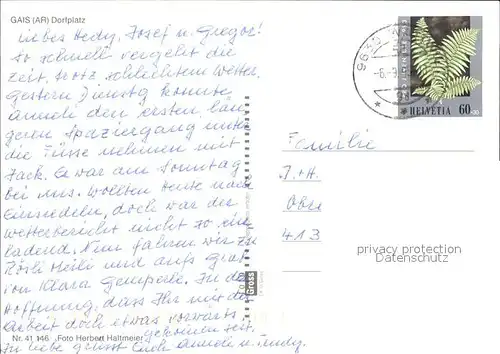 GAIS (AR) Dorfplatz
Liebes Hedy, Josef u. Gregor!
So schnell vergeht die
Zeit, trotz schlichtem Wetter.
Gestern konnte
Anneli den ersten län-
geren Spaziergang unter
die Füsse nehmen mit
Jack. Er war am Sonntag
bei uns. Wollten heute nach
Einsiedeln, doch war der
Wetterbericht nicht so ein
ladend. Nun fahren wir zu
Rösli Heili und aufs Grab
von Klara Gemperle. In der
Hoffnung, dass Ihr mit der
Arbeit doch etwas vorwärts
gekommen seit.
In Liebe grüsst Euch Anneli u. Andy.
Nr. 41 146 Foto Herbert Haltmeier
Gross
HELVETIA 60
Familie
J.+H.
Obe
413
privacy protection
Datenschutz